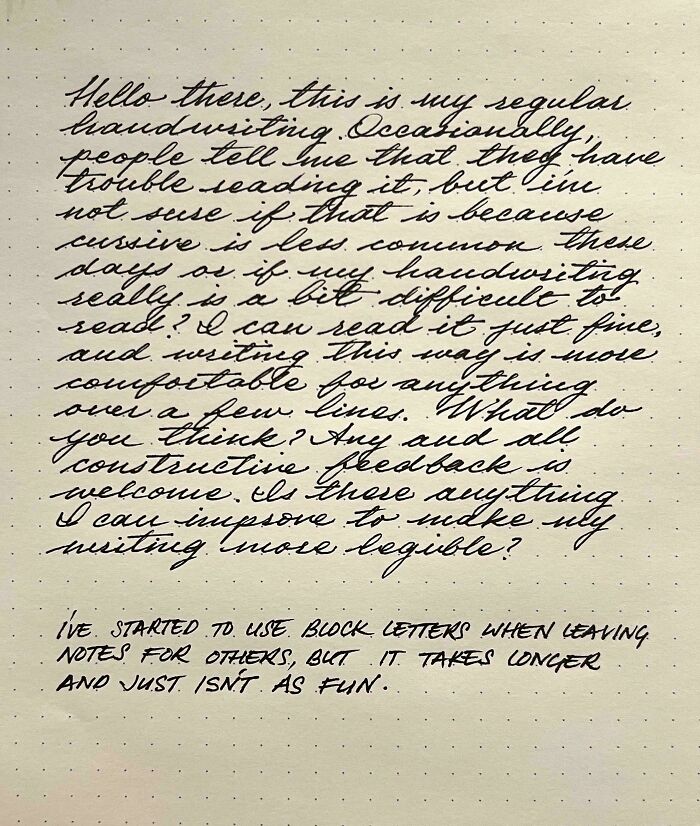 Hello there, this is my regular
handwriting. Occasionally,
people tell me that they have
trouble reading it, but i'm
not sure if that is because
cursive is less common these
days or if my handwriting
really is a bit difficult to
read? I can read it just fine,
and writing this way is more
comfortable for anything
over a few lines. What do
you think? Any and all
constructive feedback is
welcome. Is there anything
I can improve to make my
writing more legible?
I'VE STARTED TO USE BLOCK LETTERS WHEN LEAVING
NOTES FOR OTHERS, BUT IT TAKES LONGER
AND JUST ISN'T AS FUN.